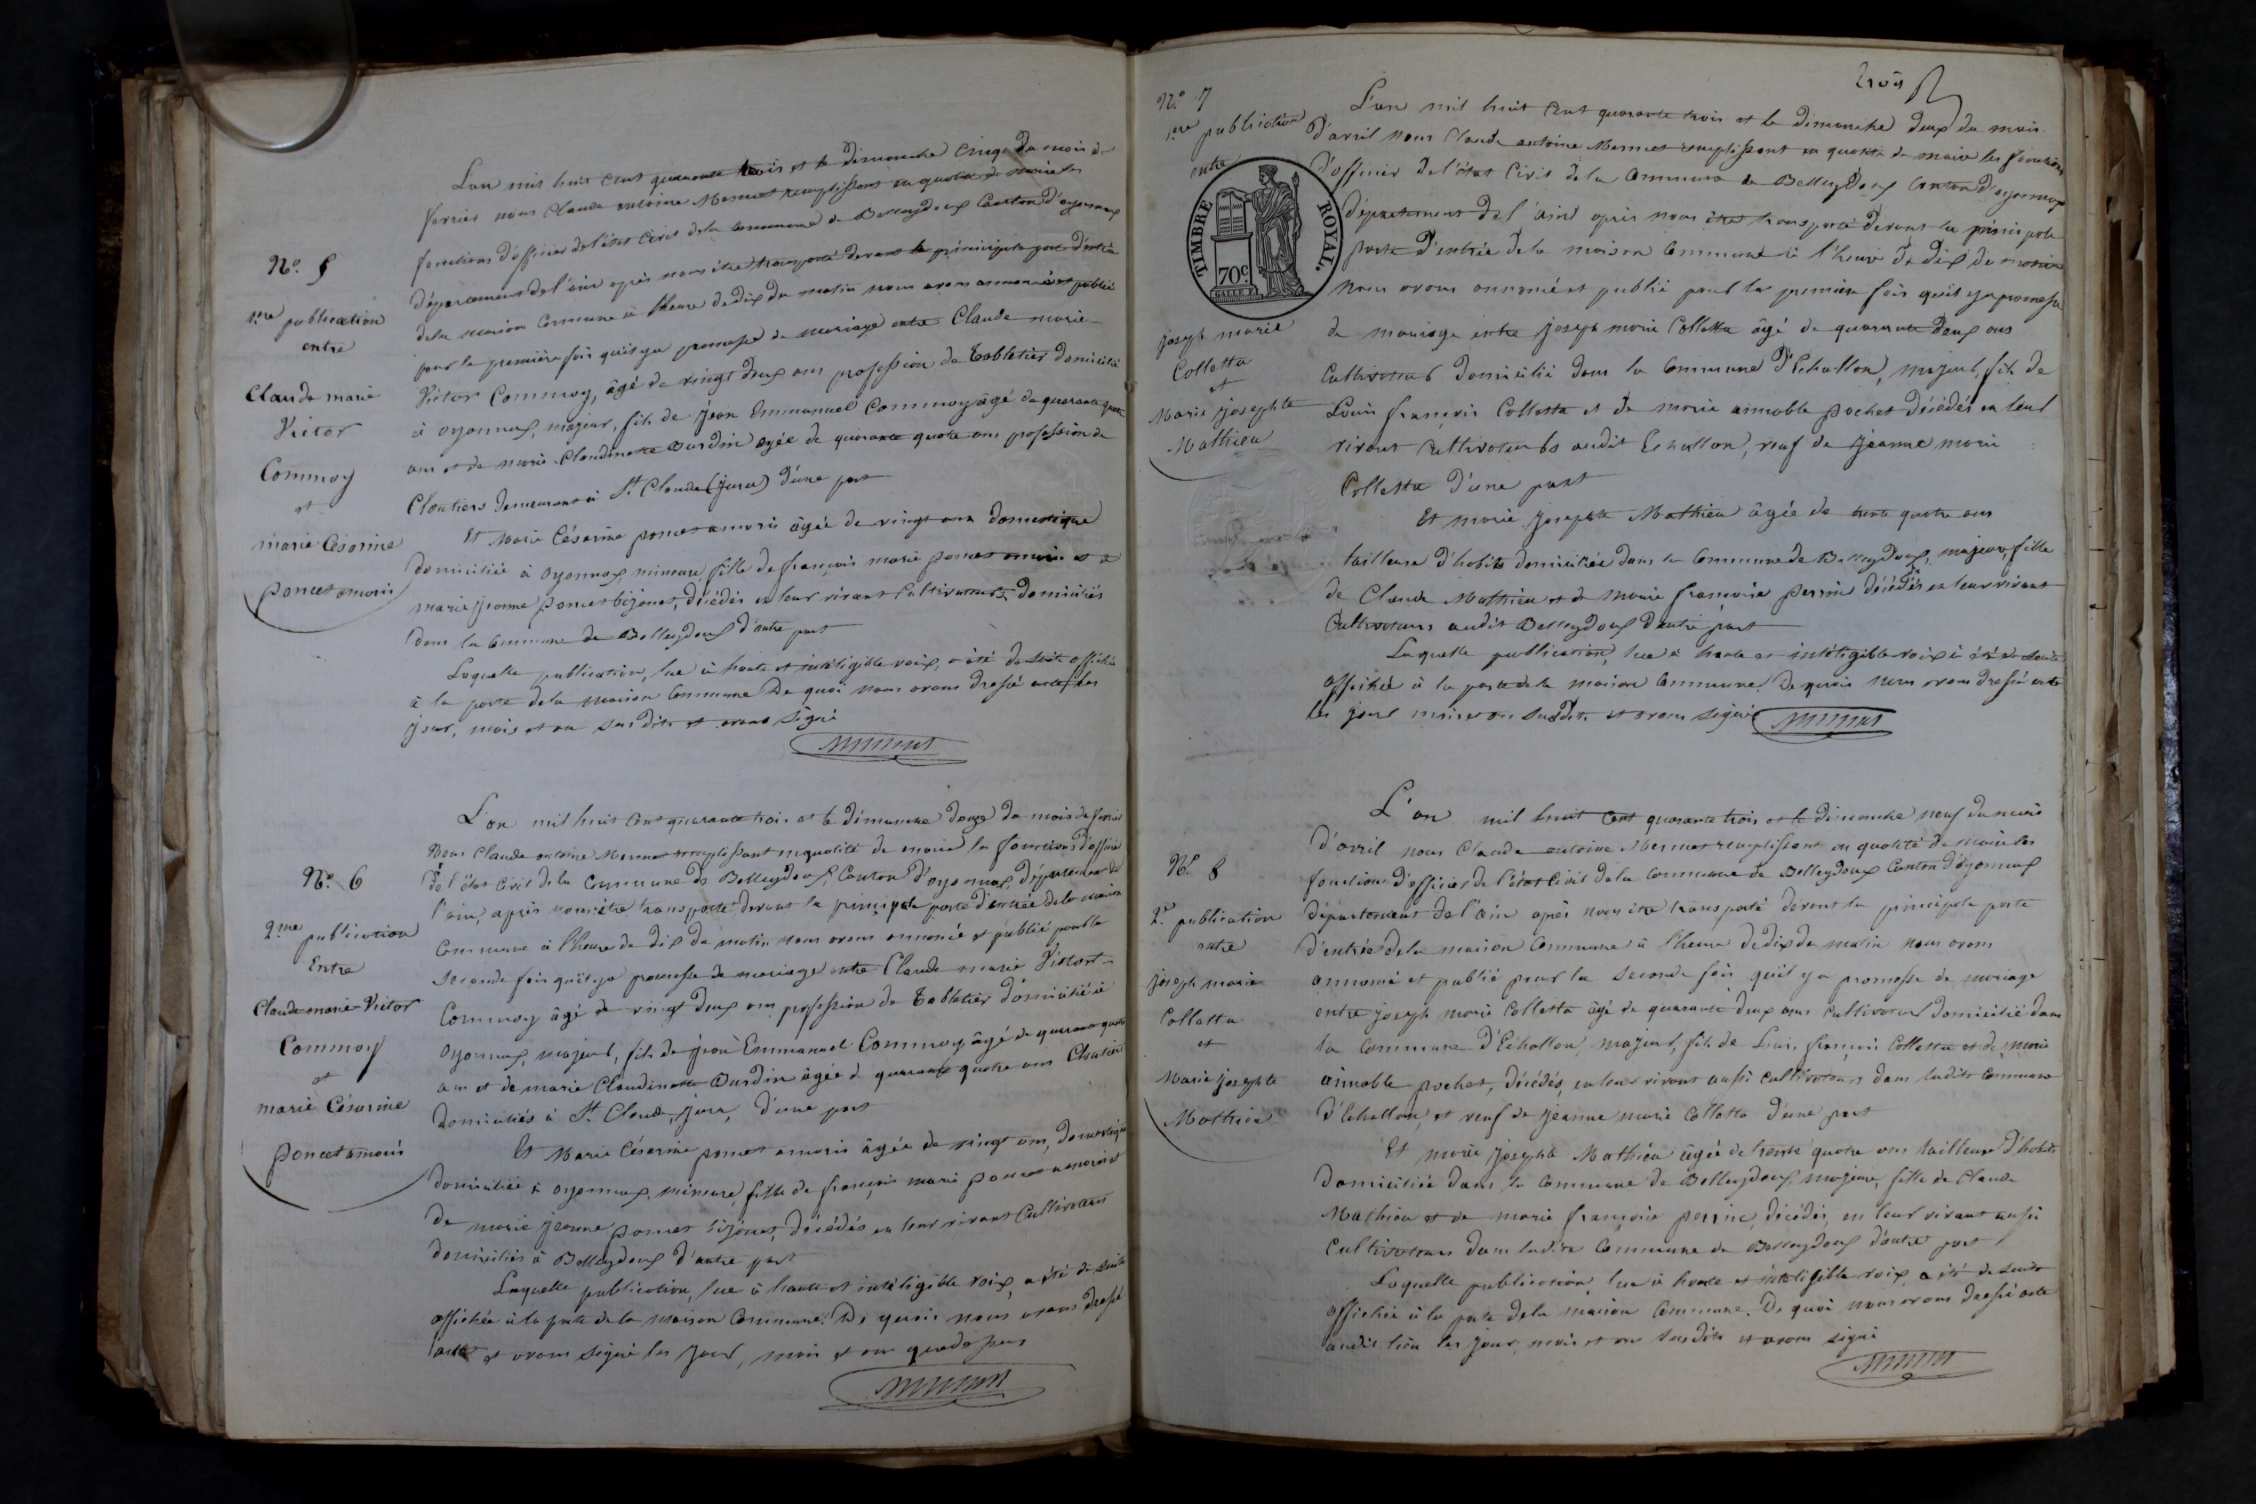 N.o 5
1.ere publication
entre
Claude marie
Victor
Commoy
et
marie Césarine
poncet amoris
L'an mil huit cent quarante trois et le dimanche cinq du mois de
fevrier nous Claude antoine Mermet remplissant en qualité de maire les
fonctions d'officier de l'état civil de la commune de Belleydoux Canton d'oyonnax
département de l'ain après nous être transporté devant la principale porte d'entrée
de la maison commune à l'heure de dix du matin nous avons annoncé et publié
pour la première fois qu'il y a promesse de mariage entre Claude marie
Victor Commoy, âgé de vingt deux ans profession de Tabletier domicilié
à oyonnax, majeur, fils de jean Emmanuel Commoy âgé de quarante quatre
ans et de marie Claudinette Durdin agée de quarante quatre ans profession de
Cloutiers demeurant à St. Claude (jura) d'une part
Et Marie Césarine poncet amoris âgée de vingt ans domestique
domiciliée à oyonnax mineure fille de françois marie poncet amoris et de
marie jeanne poncet bijonet, décédés en leur vivant Cultivateurs domiciliés
dans la Commune de Belleydoux d'autre part
Laquelle publication, lue à haute et inteligible voix, a été de suite affichée
à la porte de la maison Commune De quoi nous avons dressé acte les
jour, mois et an susdits et avons signé
Mermet
N.o 6
2.me publication
Entre
Claude marie Victor
Commoy
et
marie Césarine
poncet amoris
L'an mil huit cent quarante trois et le dimanche douze du mois de fevrier
Nous Claude antoine Mermet remplissant en qualité de maire les fonctions d'officier
de l'état civil de la commune de Belleydoux, Canton d'oyonnax, département de
l'ain, après nous être transporté devant la principale porte d'entrée de la maison
Commune à l'heure de dix du matin nous avons annoncé et publié pour la
seconde fois qu'il y a promesse de mariage entre Claude marie Victor
Commoy âgé de vingt deux ans profession de Tabletier domicilié à
Oyonnax, majeur, fils de jean Emmanuel Commoy âgé de quarante quatre
ans et de marie Claudinette Durdin âgée de quarante quatre ans
domiciliés à St. Claude, jura, d'une part
Et Marie Césarine poncet amoris âgée de vingt ans, domestique
domiciliée à oyonnax, mineure, fille de françois marie poncet amoris et
de marie jeanne poncet bijonet, décédés en leur vivant Cultivateurs
domiciliés à Belleydoux d'autre part
Laquelle publication, lue à haute et intéligible voix, a été de suite
affichée à la porte de la maison Commune. De quoi nous avons dressé
acte et avons signé les jour, mois et an que dessus
Mermet
trois
N.o 7
1.ere publication
entre
TIMBRE ROYAL.
70c
joseph marie
Colletta
et
Marie josephte
Mathieu
L'an mil huit cent quarante trois et le dimanche deux du mois
d'avril nous Claude antoine Mermet remplissant en qualité de maire les fonctions
d'officier de l'état civil de la commune de Belleydoux Canton d'oyonnax
département de l'ain après nous être transporté devant la principale
porte d'entrée de la maison Commune à l'heure de dix du matin
nous avons annoncé et publié pour la première fois qu'il y a promesse
de mariage entre joseph marie Colletta âgé de quarante deux ans
Cultivateur domicilié dans la Commune d'Echallon, majeur, fils de
Louis françois Colletta et de marie aimable pochet décédés en leur
vivant Cultivateurs audit Echallon, veuf de jeanne marie
Colletta d'une part
Et marie josephte Mathieu âgée de trente quatre ans
tailleuse d'habits domiciliée dans la Commune de Belleydoux, majeure, fille
de Claude Mathieu et de marie françoise perrin décédés en leur vivant
Cultivateurs audit Belleydoux d'autre part
Laquelle publication, lue à haute et intéligible voix a été de suite
affichée à la porte de la maison Commune. De quoi nous avons dressé acte
les jour mois et an susdits et avons signé
Mermet
N.o 8
2.e publication
entre
joseph marie
Colletta
et
Marie josephte
Mathieu
L'an mil huit cent quarante trois et le dimanche neuf du mois
d'avril nous Claude antoine Mermet remplissant en qualité de maire les
fonctions d'officier de l'état civil de la commune de Belleydoux Canton d'oyonnax
département de l'ain après nous être transporté devant la principale porte
d'entrée de la maison Commune à l'heure de dix du matin nous avons
annoncé et publié pour la seconde fois qu'il y a promesse de mariage
entre joseph marie Colletta âgé de quarante deux ans Cultivateur domicilié dans
la Commune d'Echallon, majeur, fils de Louis françois Colletta et de marie
aimable pochet, décédés, en leur vivant aussi cultivateurs dans ladite Commune
d'Echallon, et veuf de jeanne marie Colletta d'une part
Et marie josephte Mathieu âgée de trente quatre ans tailleuse d'habits
domiciliée dans la Commune de Belleydoux, majeure, fille de Claude
Mathieu et de marie françoise perrin, décédés, en leur vivant aussi
cultivateurs dans ladite Commune de Belleydoux d'autre part
Laquelle publication, lue à haute et inteligible voix, a été de suite
affichée à la porte de la maison Commune. De quoi nous avons dressé acte
audit lieu les jour, mois et an susdits et avons signé
Mermet